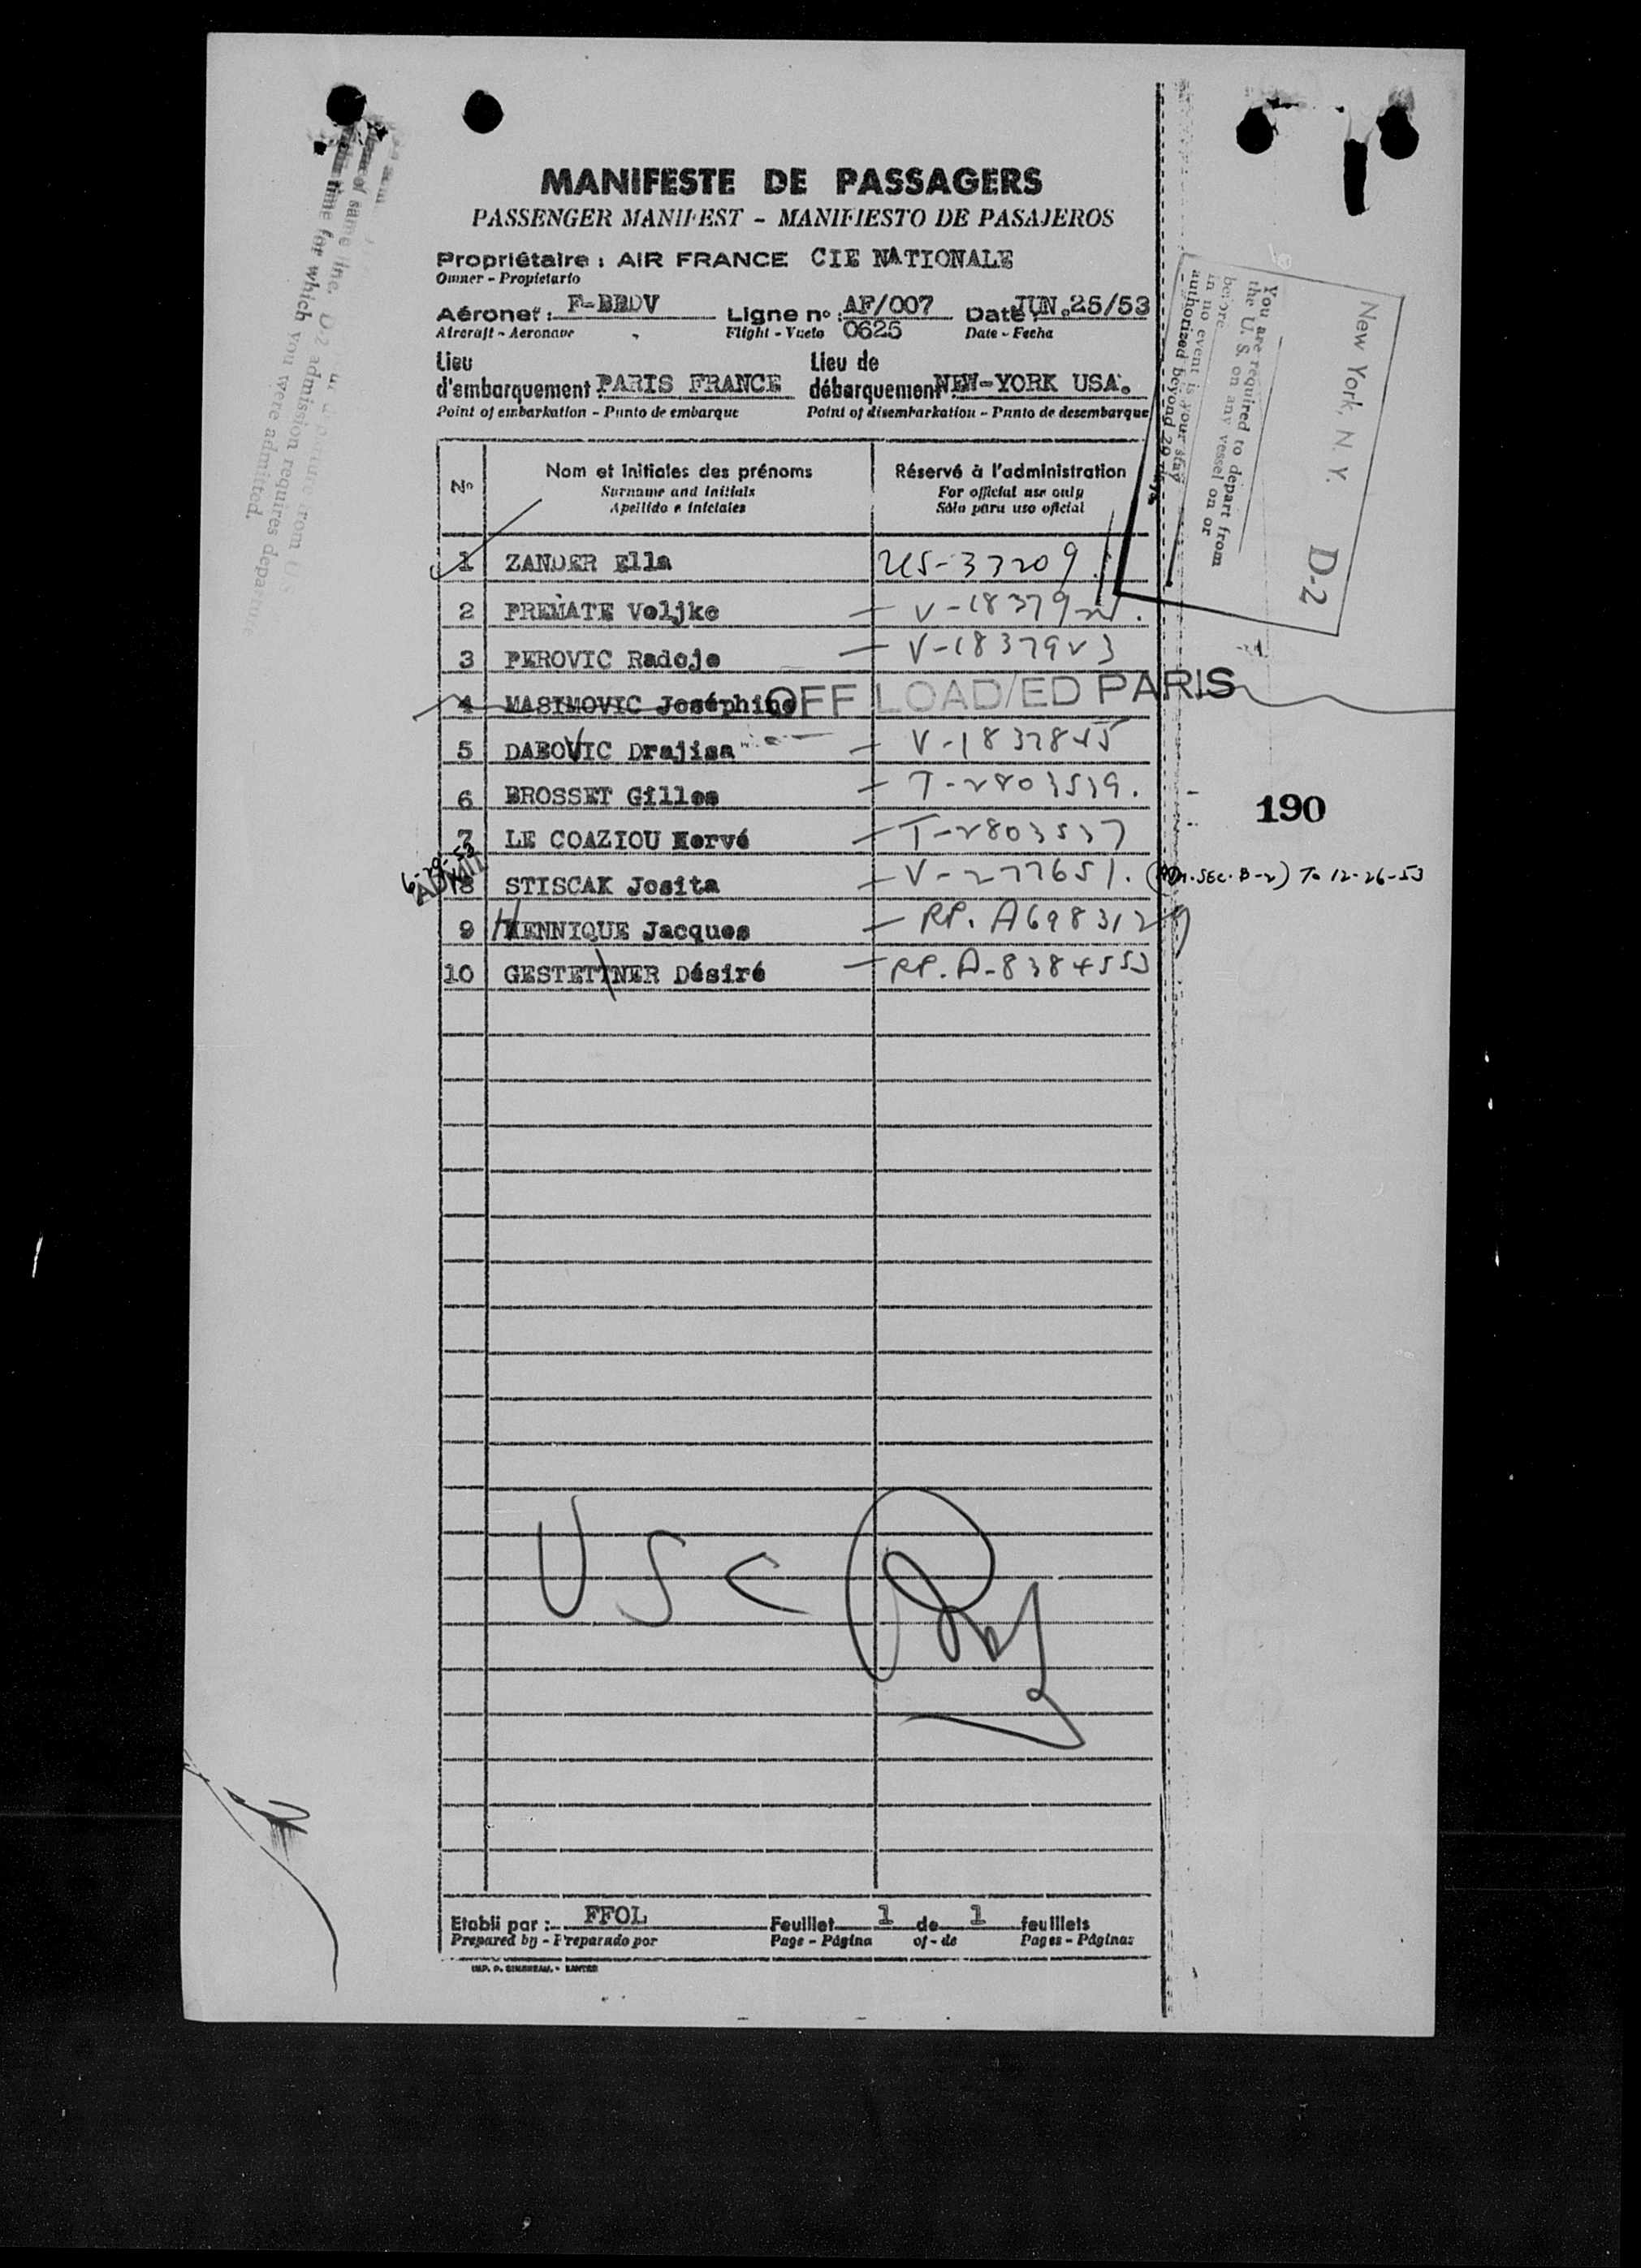 MANIFESTE DE PASSAGERS
PASSENGER MANIFEST - MANIFIESTO DE PASAJEROS
Propriétaire : AIR FRANCE CIE NATIONALE
Owner - Propietario
Aéronef : F-BEDV Ligne no : AF/007 Date : JUN.25/53
Aircraft - Aeronave Flight - Vuelo 0625 Date - Fecha
Lieu d'embarquement PARIS FRANCE Lieu de débarquement NEW-YORK USA.
Point of embarkation - Punto de embarque Point of disembarkation - Punto de desembarque
No Nom et Initiales des prénoms Réservé à l'administration
Surname and initials For official use only
Apellido e iniciales Sólo para uso oficial
1 ZANDER Ella
2 Veljko
3 PEROVIC Radoje V-1837923
4 MASIMOVIC Joséphine OFF LOADED PARIS
5 DABOVIC Drajisa
6 BROSSET Gilles T-2803539.
7 LE COAZIOU Hervé T-2803537
6-29-53
ADMIT
8 STISCAK Josita V-277651. (Adm. SEC. B-2) To 12-26-53
9 HENNIQUE Jacques RP. A6983129
10 GESTETNER Désiré RP. A-8384553
USC
Etabli par : FFOL Feuillet 1 de 1 feuillets
Prepared by - Preparado por Page - Página of - de Pages - Páginas
New York, N. Y. D-2
You are required to depart from
the U. S. on any vessel on or
before
in no event is your stay
authorized beyond 29 days.
190
from U.S.
of same line. D2 admission requires departure
time for which you were admitted.